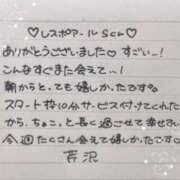 ♡レスポマールScん♡
ありがとうございました♡すごぃー!
こんなすぐまた会えて〜!
朝からと、ても嬉しかたです。
スタート枠10分サービス付けてくれた
から、ちょこと長く過ごせて幸せ
今週たくさん会えて嬉しかたです○
芹沢